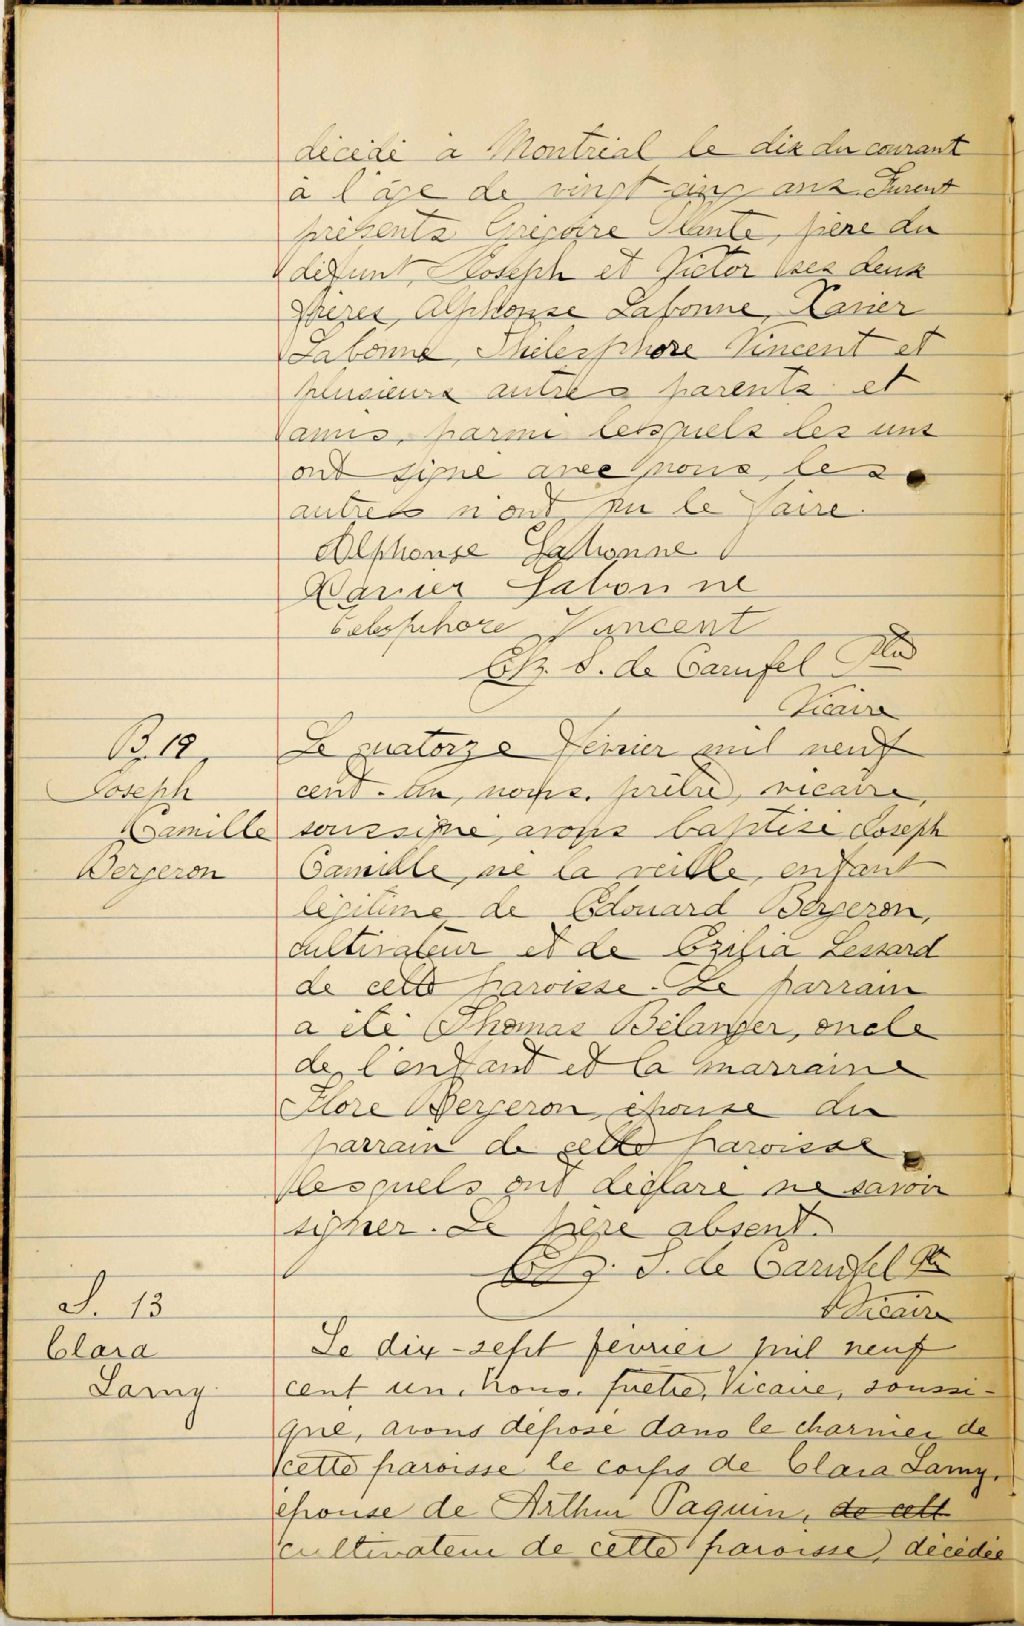 décédé à Montréal le dix du courant
à l'âge de vingt-cinq ans. Furent
présents Grégoire Plante, père du
défunt, Joseph et Victor ses deux
frères, Alphonse Labonne, Xavier
Labonne, Thélesphore Vincent et
plusieurs autres parents et
amis, parmi lesquels les uns
ont signé avec nous, les
autres n'ont pu le faire.
Alphonse Labonne
Xavier Labonne
Telesphore Vincent
Elz. S. de Carufel Ptre
Vicaire
B. 19
Joseph
Camille
Bergeron
Le quatorze février mil neuf
cent-un, nous, prêtre, vicaire,
soussigné, avons baptisé Joseph
Camille, né la veille, enfant
légitime de Edouard Bergeron,
cultivateur et de Ezilia Lessard
de cette paroisse. Le parrain
a été Thomas Bélanger, oncle
de l'enfant et la marraine
Flore Bergeron, épouse du
parrain de cette paroisse
lesquels ont déclaré ne savoir
signer. Le père absent.
Elz. S. de Carufel Ptre
Vicaire
S. 13
Clara
Lamy
Le dix-sept février mil neuf
cent un, nous, prêtre, Vicaire, soussi-
gné, avons déposé dans le charnier de
cette paroisse le corps de Clara Lamy,
épouse de Arthur Paquin, de cett
cultivateur de cette paroisse, décédée